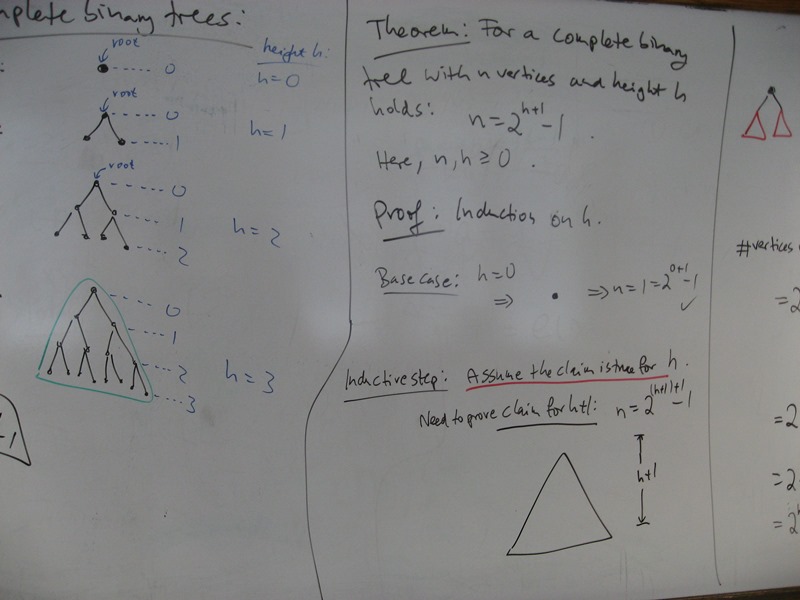 mplete binary trees:
root
0
height h:
h=0
root
0
1
h=1
root
0
1
2
h=2
0
1
2
3
h=3
-1
Theorem: For a complete binary
tree with n vertices and height h
holds: n=2^{h+1}-1.
Here, n,h≥0.
Proof: Induction on h.
Base case: h=0
⇒ • ⇒n=1=2^{0+1}-1 ✓
Inductive step: Assume the claim is true for h.
Need to prove claim for h+1: n=2^{(h+1)+1}-1
h+1
#vertices
=2
=2
=2
=2^h